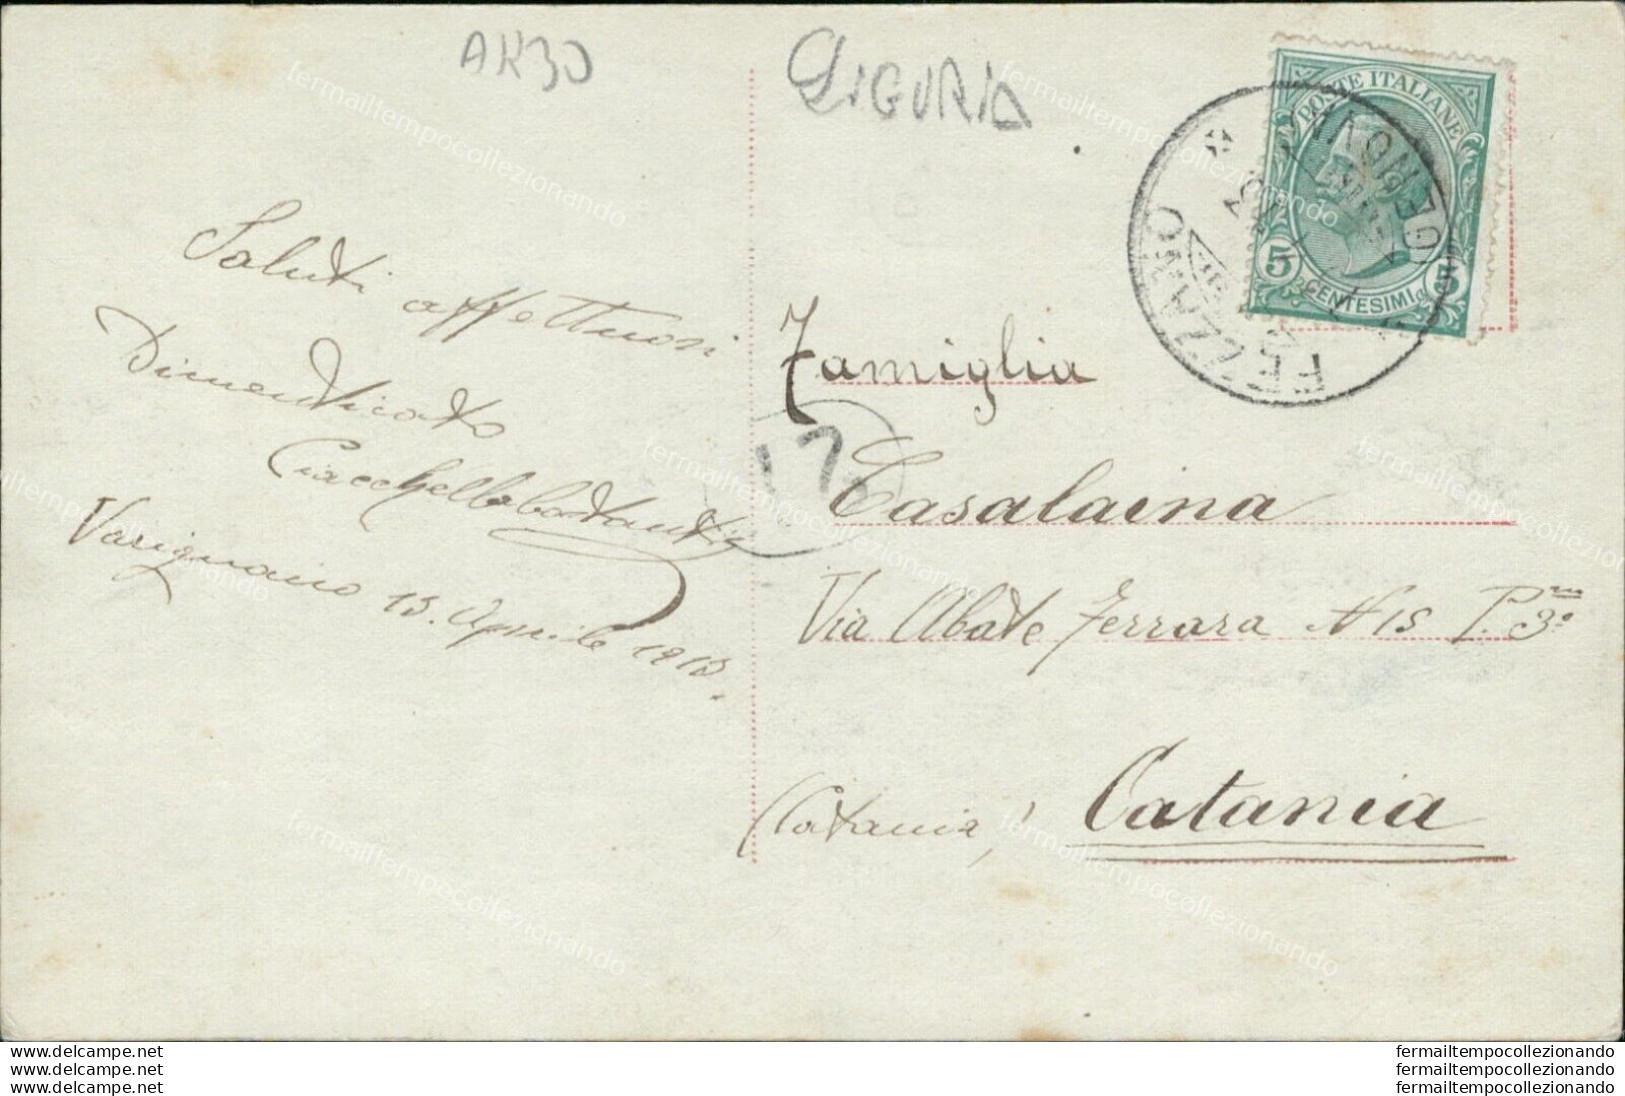 AK30
LIGURIA
POSTE ITALIANE
5 CENTESIMI 5
FEZZANO
GENOVA
Saluti affettuosi
Dimenticato
Varignano 15. Aprile 1915.
17
Famiglia
Casalaina
Via Abate Ferrara N 15 P. 3º
(Catania) Catania
www.delcampe.net
www.delcampe.net
www.delcampe.net
fermailtempocollezionando
fermailtempocollezionando
fermailtempocollezionando